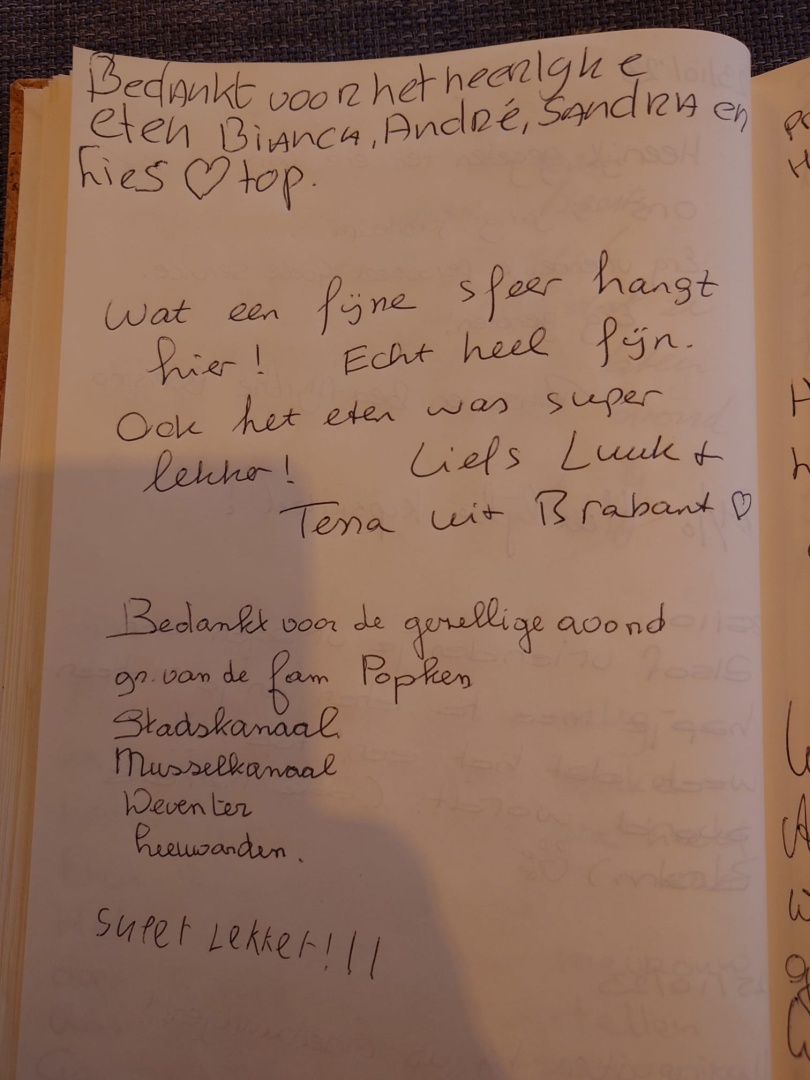 Bedankt voor het heerlijke
eten Bianca, André, Sandra en
Lies ♡ top.
Wat een fijne sfeer hangt
hier! Echt heel fijn.
Ook het eten was super
lekker! Liefs Luuk +
Tessa uit Brabant ♡
Bedankt voor de gezellige avond
gr. van de fam Popken
Stadskanaal
Musselkanaal
Deventer
Leeuwarden.
Super Lekker!!!